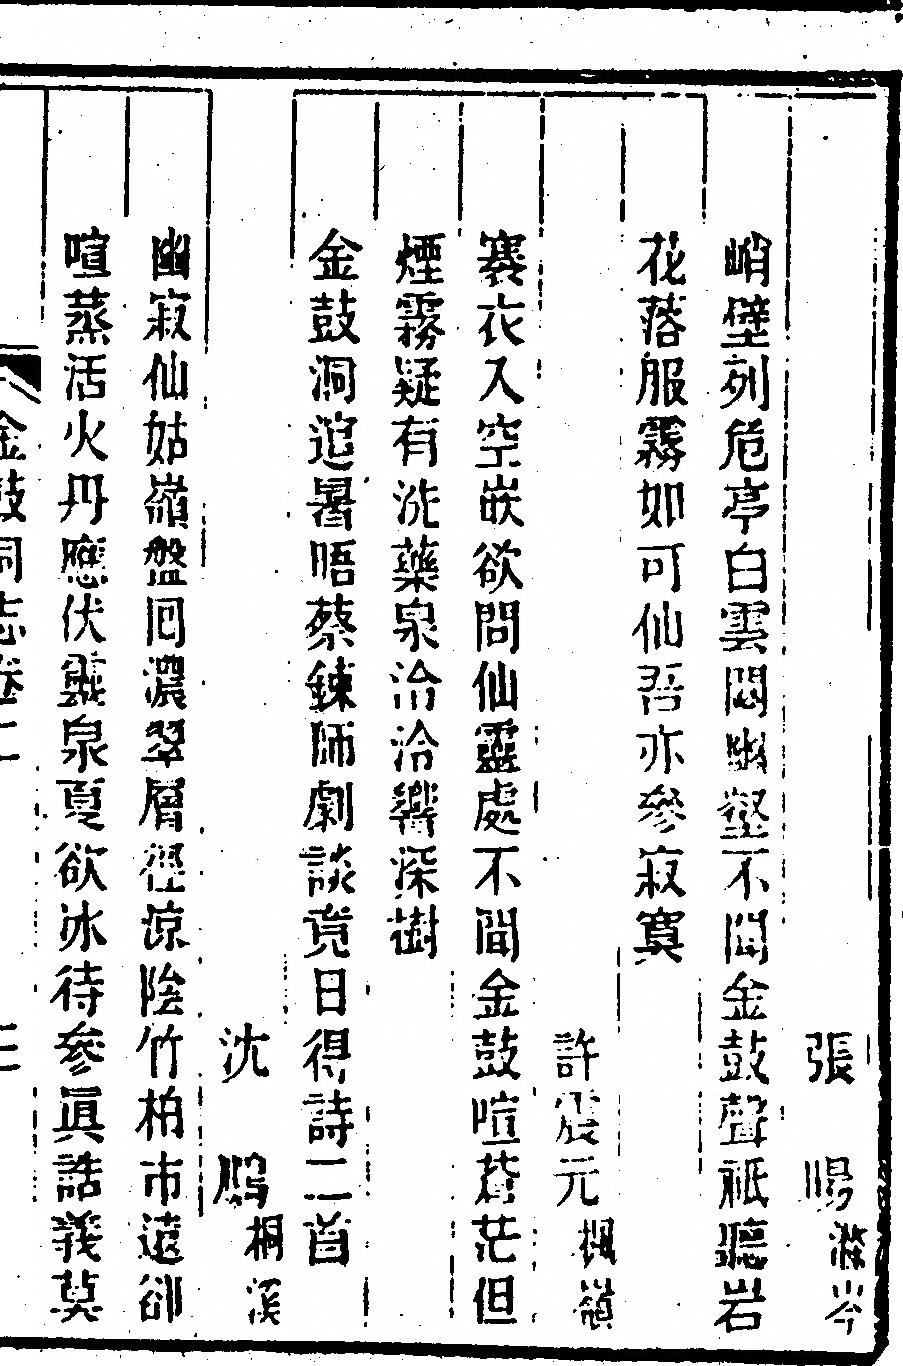 張 賜 滌岑
峭壁列危亭白雲閟幽壑不聞金鼓聲祗聽岩
花落服霧如可仙吾亦參寂寞
許震元 楓嶺
褰衣入空嵌欲問仙靈處不聞金鼓喧蒼茫但
煙霧疑有洗藥泉泠泠響深樹
金鼓洞避暑晤蔡鍊師劇談竟日得詩二首
沈 鵰 桐溪
幽寂仙姑嶺盤回濃翠層徑涼陰竹柏市遠卻
喧蒸活火丹應伏靈泉夏欲冰待參眞誥義莫
金鼓洞志卷二